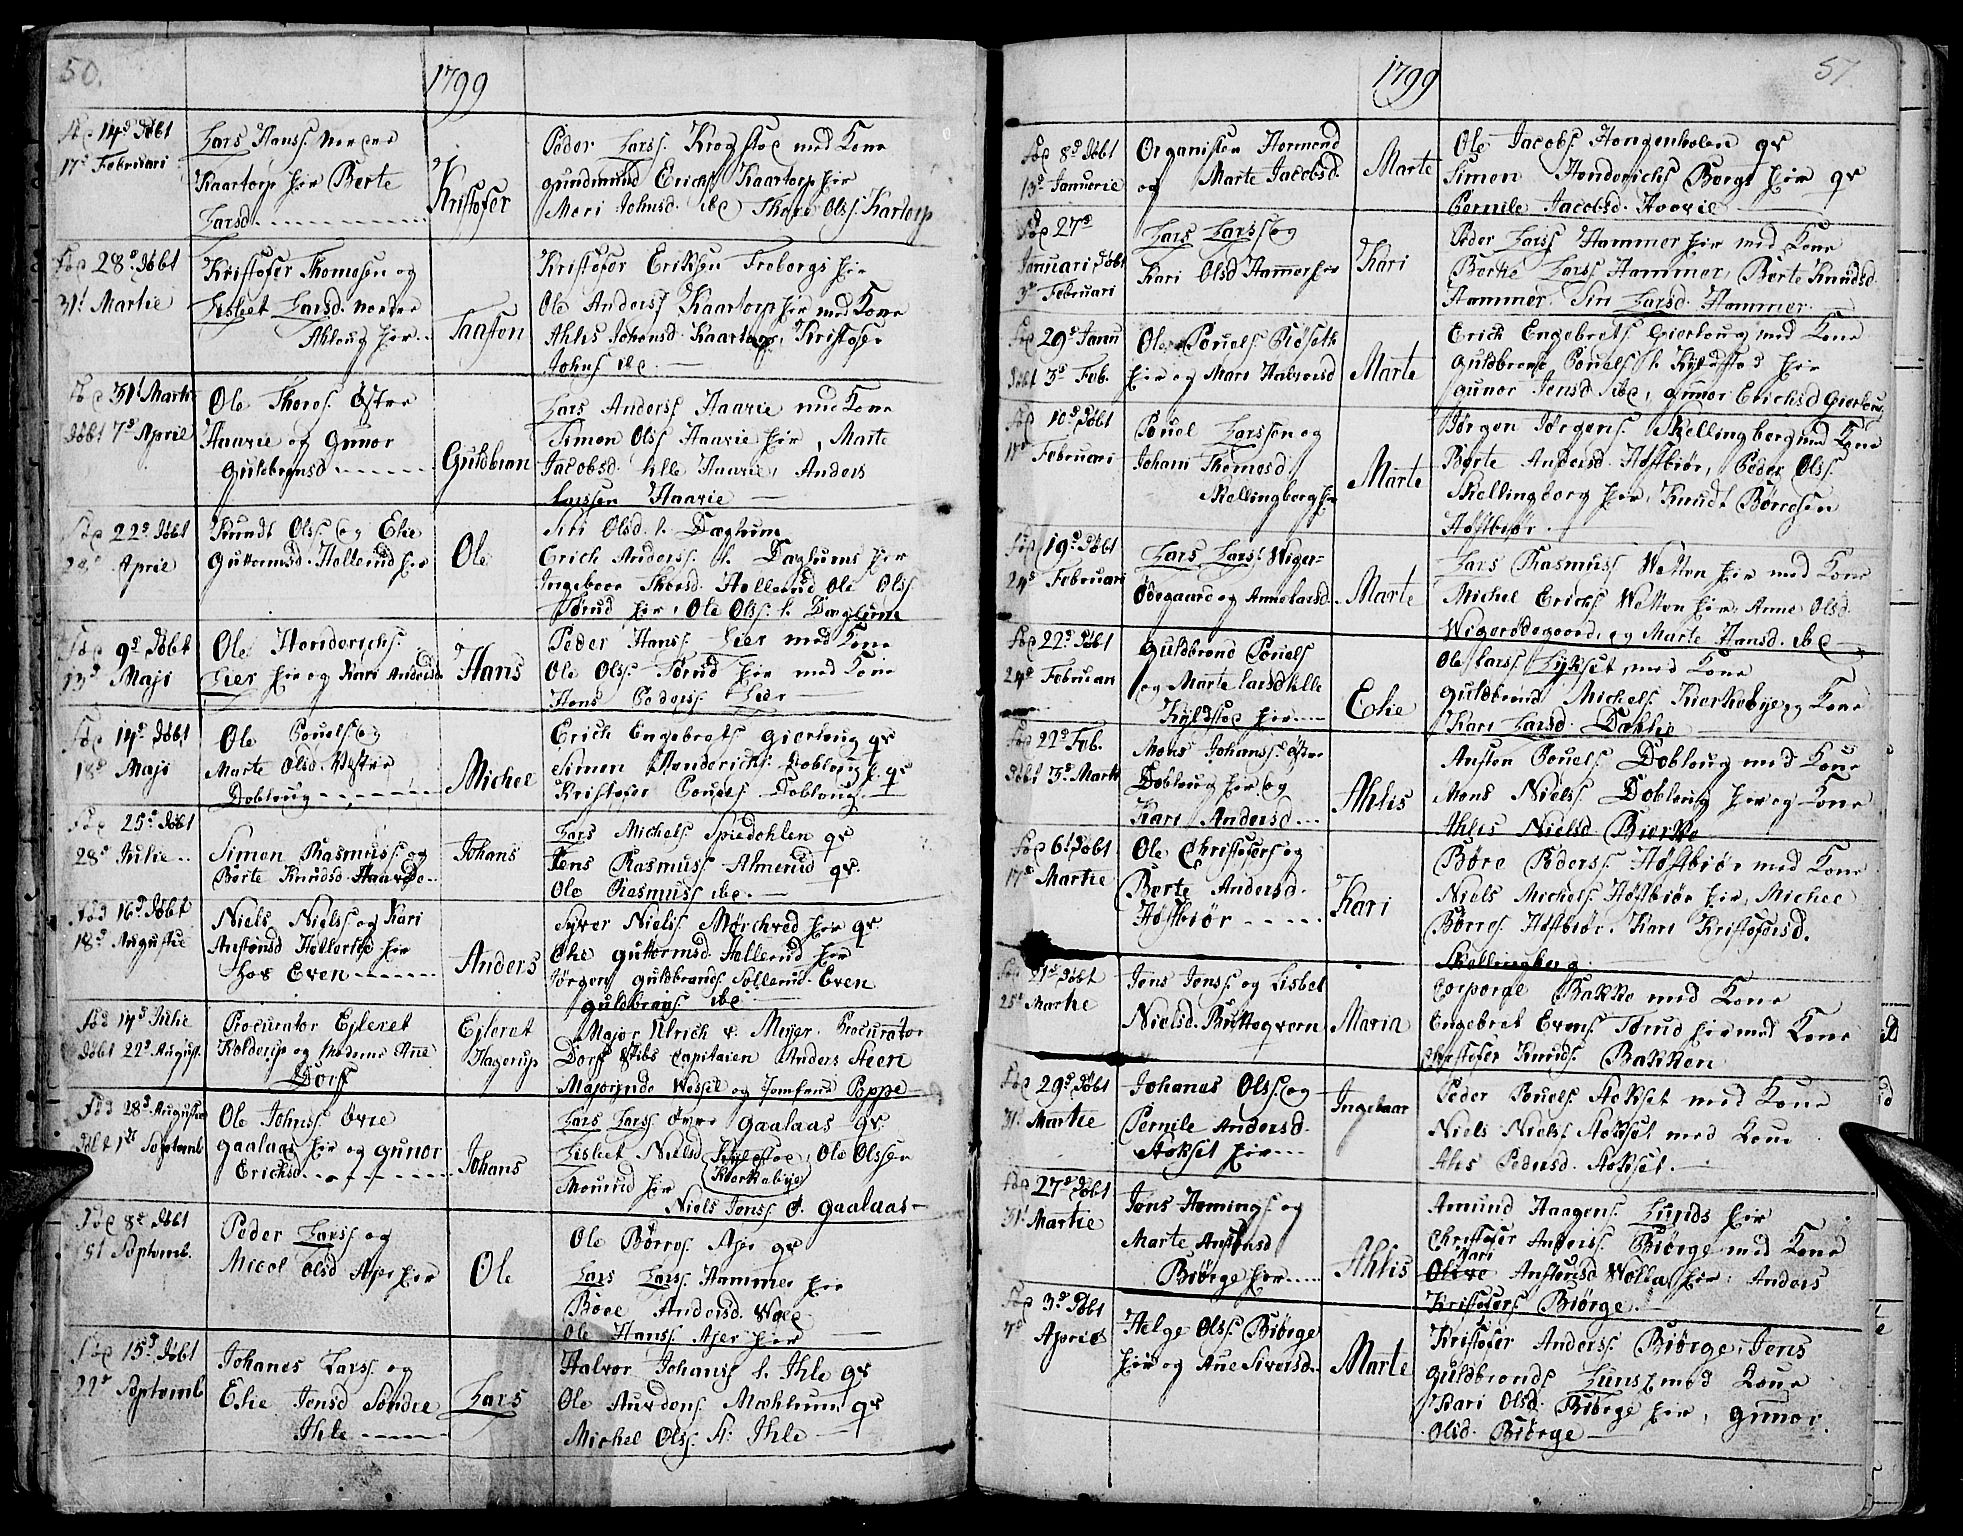 50.
1799
Fød 14d Døbt
17d Februari
Lars Hanss. nordre
Kaartorp her Berte
Larsd
Kristofer
Peder Larss. Krogstoe med Kone
Gundmund Erichs Kaartorp her
Mari Johnsd. ibd Thore Olss. Kartorp
Fød 28d Døbt
31t Martie
Kristofer Thomesen og
Lisbet Larsd. nordre
Ahloug her
Taasten
Kristofer Eriksen Frobergs her
Ole Anderss Kaartorp her med Kone
Ahlis Johansd. Kaartorp, Kristofer
Johns ibd.
Fød 31t Marti
Døbt 7d April
Ole Thores. Østre
Haarie og Gunor
Guldbransd
Guldbran
Lars Anderss. Haarie med Kone
Simon Olss Haarie her, Marte
Jacobsd. lille Haarie, Anders
Larssen Haarie
Fød 22d Døbt
28d April
Knudt Olss. og Elie
Guttormsd. Hollerud her
Ole
Siri Olsd. l. Dæglum
Erich Anderss. l. Dæglums her
Ingeboer Thoresd. Hollerud Ole Olss.
Sørud her, Ole Olss. l. Dæglum
Fød 9d Døbt
13d Maji
Ole Henderichs.
Lier her og Kari Andersd.
Hans
Peder Hanss. Lier med Kone
Ole Olss. Sørud her med Kone
Hans Pederss. Lier
Fød 14d Døbt
18d Maji
Ole Pouels og
Marte Olsd. Vestre
Dobloug
Michel
Erich Engebrets Gierloug gr
Simen Henderichs. Dobloug h. gr
Kristofer Pouels Dobloug
Fød 25d Døbt
28d Julie
Simen Rasmuss og
Berte Knudsd. Haarde
Johans
Lars Michels Spiedahlen gr
Jens Rasmuss Almerud gr.
Ole Rasmuss ibd.
Fød 16d Døbt
18d Augustie
Niels Nielss og Kari
Anstensd Hollerhie her
hos Even
Anders
Syver Niels. Mørchved her gr.
Elie Guttormsd. Hollerud her
Jørgen Guldbrands Sollerud. Even
Guldbrans. ibd
Fød 14d Julie
Døbt 22d August.
Procurator Ejleret
Kolderup og Madame Ane
Dorf
Ejleret
Hagerup
Major Ulrich v. Meyer. Procurator
Dorf Stibs Capitaien Anders Heen
Majorinde Wessel og Jomfrue Poppe
Fød 28d Augustie
Døbt 1st Septemb
Ole Johnss. Øvre
Gaalaas her og Gunor
Erichsd.
Johans
Lars Larss. Øvre Gaalaas gr.
Lisbet Nielsd. Kylestoe, Ole Olssen
Kierkebye
Mourud her
Niels Jenss Ø. Gaalaas
Fød 8d Døbt
Septemb.
Peder Larss og
Nicol Olsd Ajer her
Ole
Ole Børres. Ajer gr
Lars Larss. Hammer her
Boel Andersd. Wole
Ole Hanss. Ajer her
Fød 15d Døbt
22d Septemb
Johanes Larss. og
Elie Jensd Søndre
Ihle
Lars
Halvor Johanss l. Ihle gr
Ole Auvdens. Mæhlum gr
Michel Olss. N. Ihle
1799
51
Fød 8d Døbt
13d Januarie
Organisten Hormand
og Marte Jacobsd.
Marte
Ole Jacobs Hongenholen gr
Simon Henderichs Borgs her gr
Pernile Jacobsd. Haarie
Fød 27d
Januari Døbt
3d Februari
Lars Larss og
Kari Olsd Hammer her
Kari
Peder Larss Hammer her med Kone
Børke Larss Hammer, Berte Knudsd.
Hammer. Siri Larsd. Hammer
Fød 29d Janu
Døbt 3d Feb.
Ole Pouels Biøseth
her og Mari Halvorsd
Marte
Erich Engebrets Gierloug med Kone
Guldbrand Pouels l. Kyldstad her
Gunor Jensd. ibd, Gunor Erichsd Gierloug
Fød 10d Døbt
17d Februari
Pouel Larsson og
Johani Thomesd
Skellingberg her
Marte
Jørgen Jørgens. Skellingberg med Kone
Berte Andersd. Høstbiør, Peder Olss.
Skellingberg her, Knudt Børresen
Høstbiør.
Fød 19d Døbt
24d Februari
Lars Larss. Wiger-
Ødegaard og Anne Larsd.
Marte
Lars Rasmuss Wetten her med Kone
Michel Erichs Wetten her, Anne Olsd.
Wigerødegaard, og Marte Hansd. ibd
Fød 22d Døbt
24d Februari
Guldbrand Pouels
og Marte Larsd lille
Kyldstoe her
Elie
Ole Larss. Lykset med Kone
Guldbrand Michels. Kierkebye og Kone
Kari Larsd. Dæhlie
Fød 22d Feb.
Døbt 3d Marti
Mons Johanss. Østre
Dobloug her og
Kari Andersd
Ahlis
Ansten Pouels Dobloug med Kone
Mons Niels. Dobloug her og Kone
Ahlis Nielsd. Bierke
Fød 6t Døbt
17d Martie
Ole Christofers og
Berte Andersd.
Høstbiør
Kari
Børe Peders. Høstbiør med Kone
Niels Michels. Høstbiør her, Michel
Børres. Høstbiør. Kari Kristofersd.
Skellingberg
Fød 21d Døbt
25d Martie
Jens Jenss. og Lisbet
Nielsd. Buttegvern
Maria
Corporal Bakke med Kone
Engebret Evens. Sørud her med Kone
Christofer Knuds. Bakken
Fød 29d Døbt
31t Martie
Johanes Olss og
Pernile Andersd.
Stokset her
Ingeboer
Peder Pouels Stokset med Kone
Niels Niels. Stokset med Kone
Ahs Pedersd. Stokset.
Fød 27d Døbt
31t Martie
Jens Hemings og
Marte Anstensd
Biørge her
Ahlis
Amund Haagens. Lunds her
Christofer Anders. Biørge med Kone
Kari
Anstensd Wolla her, Anders
Kristofers Biørge
Fød 3d Døbt
7d Apriis
Helge Olss. Biørge
her og Ane Siversd.
Marte
Kristofer Anderss. Biørge, Jens
Guldbrands Lunds med Kone
Kari Olsd. Biørge her, Gunor
Olsd. Biørge